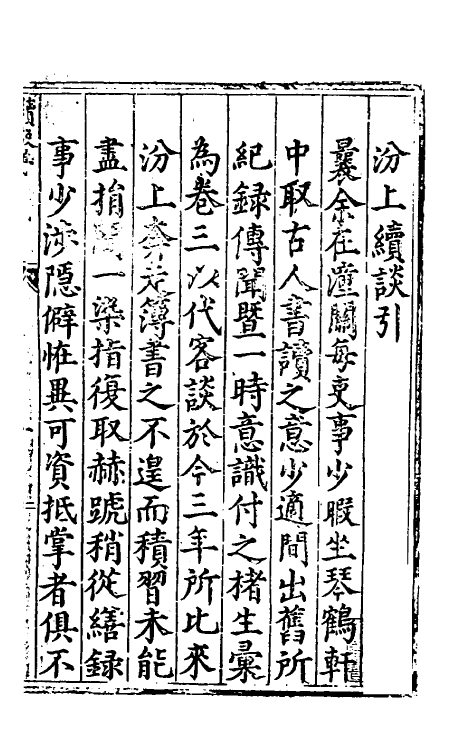 汾上續談引
曩余在潼關每吏事少暇坐琴鶴軒
中取古人書讀之意少適間出舊所
紀録傳聞暨一時意識付之楮生彚
為卷三以代客談於今三年所比來
汾上奔走簿書之不遑而積習未能
盡捐間一染指復取赫號稍從繕録
事少涉隠僻恠異可資抵掌者俱不